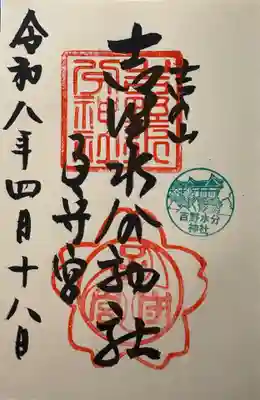 吉野山
吉野水分神社
子守宮
令和八年四月十八日
吉野水分
神社